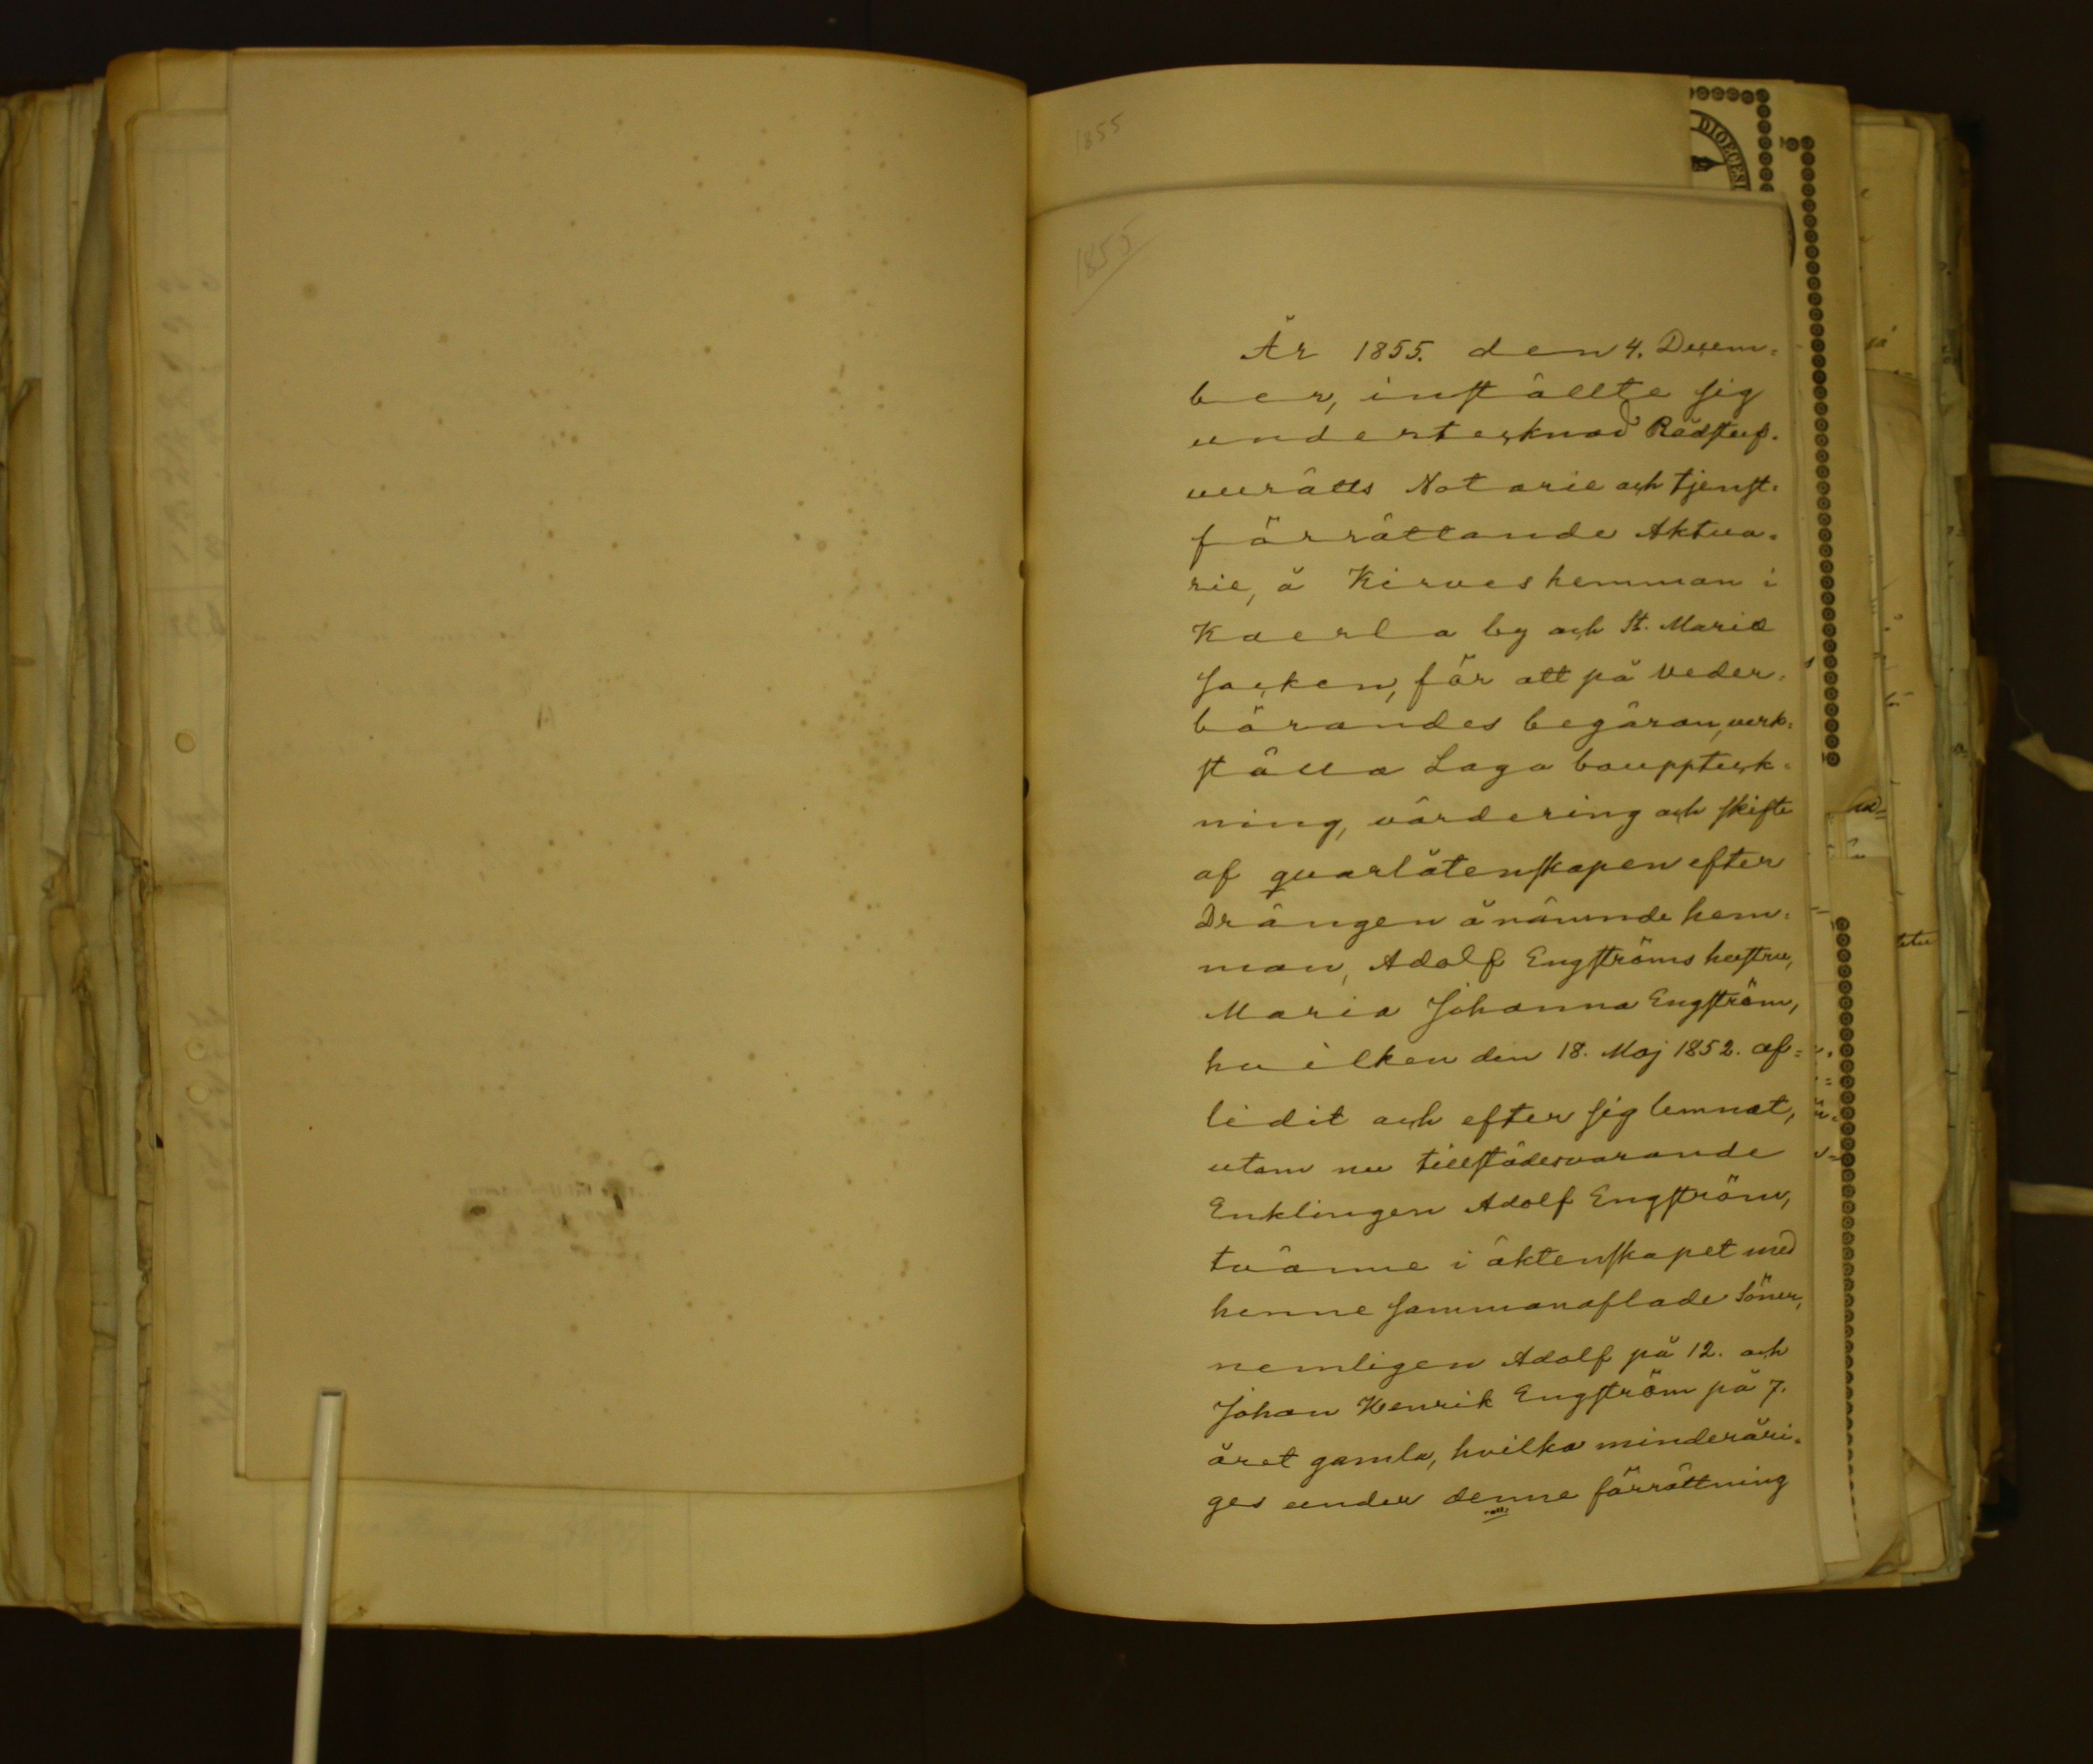 1855
DIOECESI
1855
År 1855. den 4. Decem=
ber, instâllte sig
undertecknad Rådstuf=
vurâtts Notarie och tjenst=
förrâttande Aktua=
rie, å Kirves hemman i
Kaerla by och St. Mariæ
Socken, för att på veder=
börandes begâran, verk=
stâlla Laga bouppteck=
ning, vârdering och skifte
af quarlåtenskapen efter
Drângen å nâmnde hem=
man, Adolf Engströms hustru,
Maria Johanna Engström,
hvilken den 18. Maj 1852. af=
lidit och efter sig lemnat,
utom nu tillstâdesvarande
Enklingen Adolf Engström,
tvânne i âktenskapet med
henne sammanaflade Söner,
nemligen Adolf på 12. och
Johan Henrik Engström på 7.
året gamla, hvilka minderåri=
ges under denne förrâttning